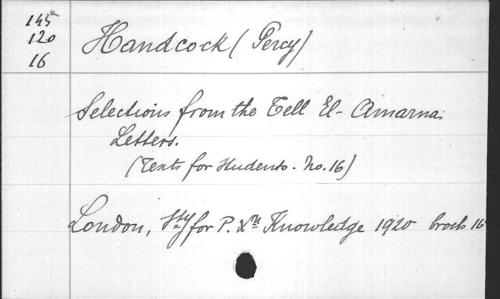 145
120
16
Handcock (Percy)
Selections from the Tell El-Amarna
Letters.
(Texts for Students. No. 16)
London, Sty for P. Xn Knowledge 1920 broch 16